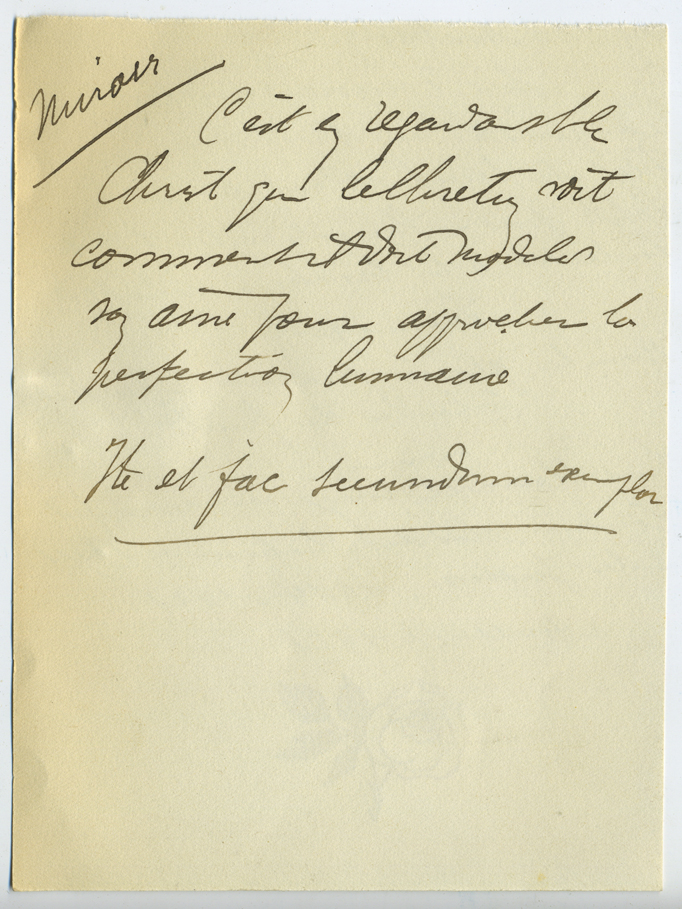 Miroir
C'est en regardant le
Christ que le chretien voit
comment il doit modeler
son ame pour approcher la
perfection humaine
Ite et fac secundum exemplar